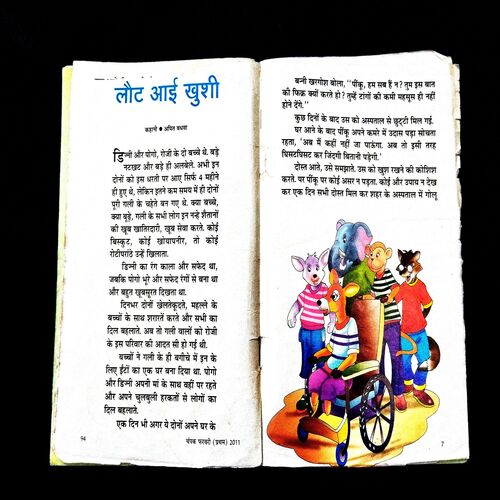 लौट आई खुशी
कहानी ● अमित वधवा
डिम्नी और पोगो, रोजी के दो बच्चे थे. बड़े
नटखट और बड़े ही अलबेले. अभी इन
दोनों को इस धरती पर आए सिर्फ 4 महीने
ही हुए थे, लेकिन इतने कम समय में ही दोनों
पूरी गली के चहेते बन गए थे. क्या बच्चे,
क्या बूढ़े, गली के सभी लोग इन नन्हे शैतानों
की खूब खातिरदारी, खूब सेवा करते. कोई
बिस्कुट, कोई खोयापनीर, तो कोई
रोटीपराठे उन्हें खिलाता.
डिम्नी का रंग काला और सफेद था,
जबकि पोगो भूरे और सफेद रंगों से बना था
और बहुत खूबसूरत दिखता था.
दिनभर दोनों खेलतेकूदते, महल्ले के
बच्चों के साथ शरारतें करते और सभी का
दिल बहलाते. अब तो गली वालों को रोजी
के इस परिवार की आदत सी हो गई थी.
बच्चों ने गली के ही बगीचे में इन के
लिए ईंटों का एक घर बना दिया था. पोगो
और डिम्नी अपनी मां के साथ वहीं पर रहते
और अपने चुलबुली हरकतों से लोगों का
दिल बहलाते.
एक दिन भी अगर ये दोनों अपने घर के
94
चंपक फरवरी (प्रथम) 2011
बन्नी खरगोश बोला, ''पींकू, हम सब हैं न? तुम इस बात
की फिक्र क्यों करते हो? तुम्हें टांगों की कमी महसूस ही नहीं
होने देंगे.''
कुछ दिनों के बाद उस को अस्पताल से छुट्टी मिल गई.
घर आने के बाद पींकू अपने कमरे में उदास पड़ा सोचता
रहता, 'अब मैं कहीं नहीं जा पाऊंगा. अब तो इसी तरह
घिसटघिसट कर जिंदगी बितानी पड़ेगी.'
दोस्त आते, उसे समझाते. उस को खुश रखने की कोशिश
करते. पर पींकू पर कोई असर न पड़ता. कोई और उपाय न देख
कर एक दिन सभी दोस्त मिल कर शहर के अस्पताल में गोलू
7